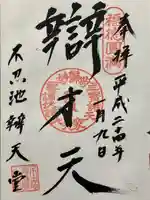 奉拝 平成二十四年
一月九日
辯才天
不忍池辯天堂